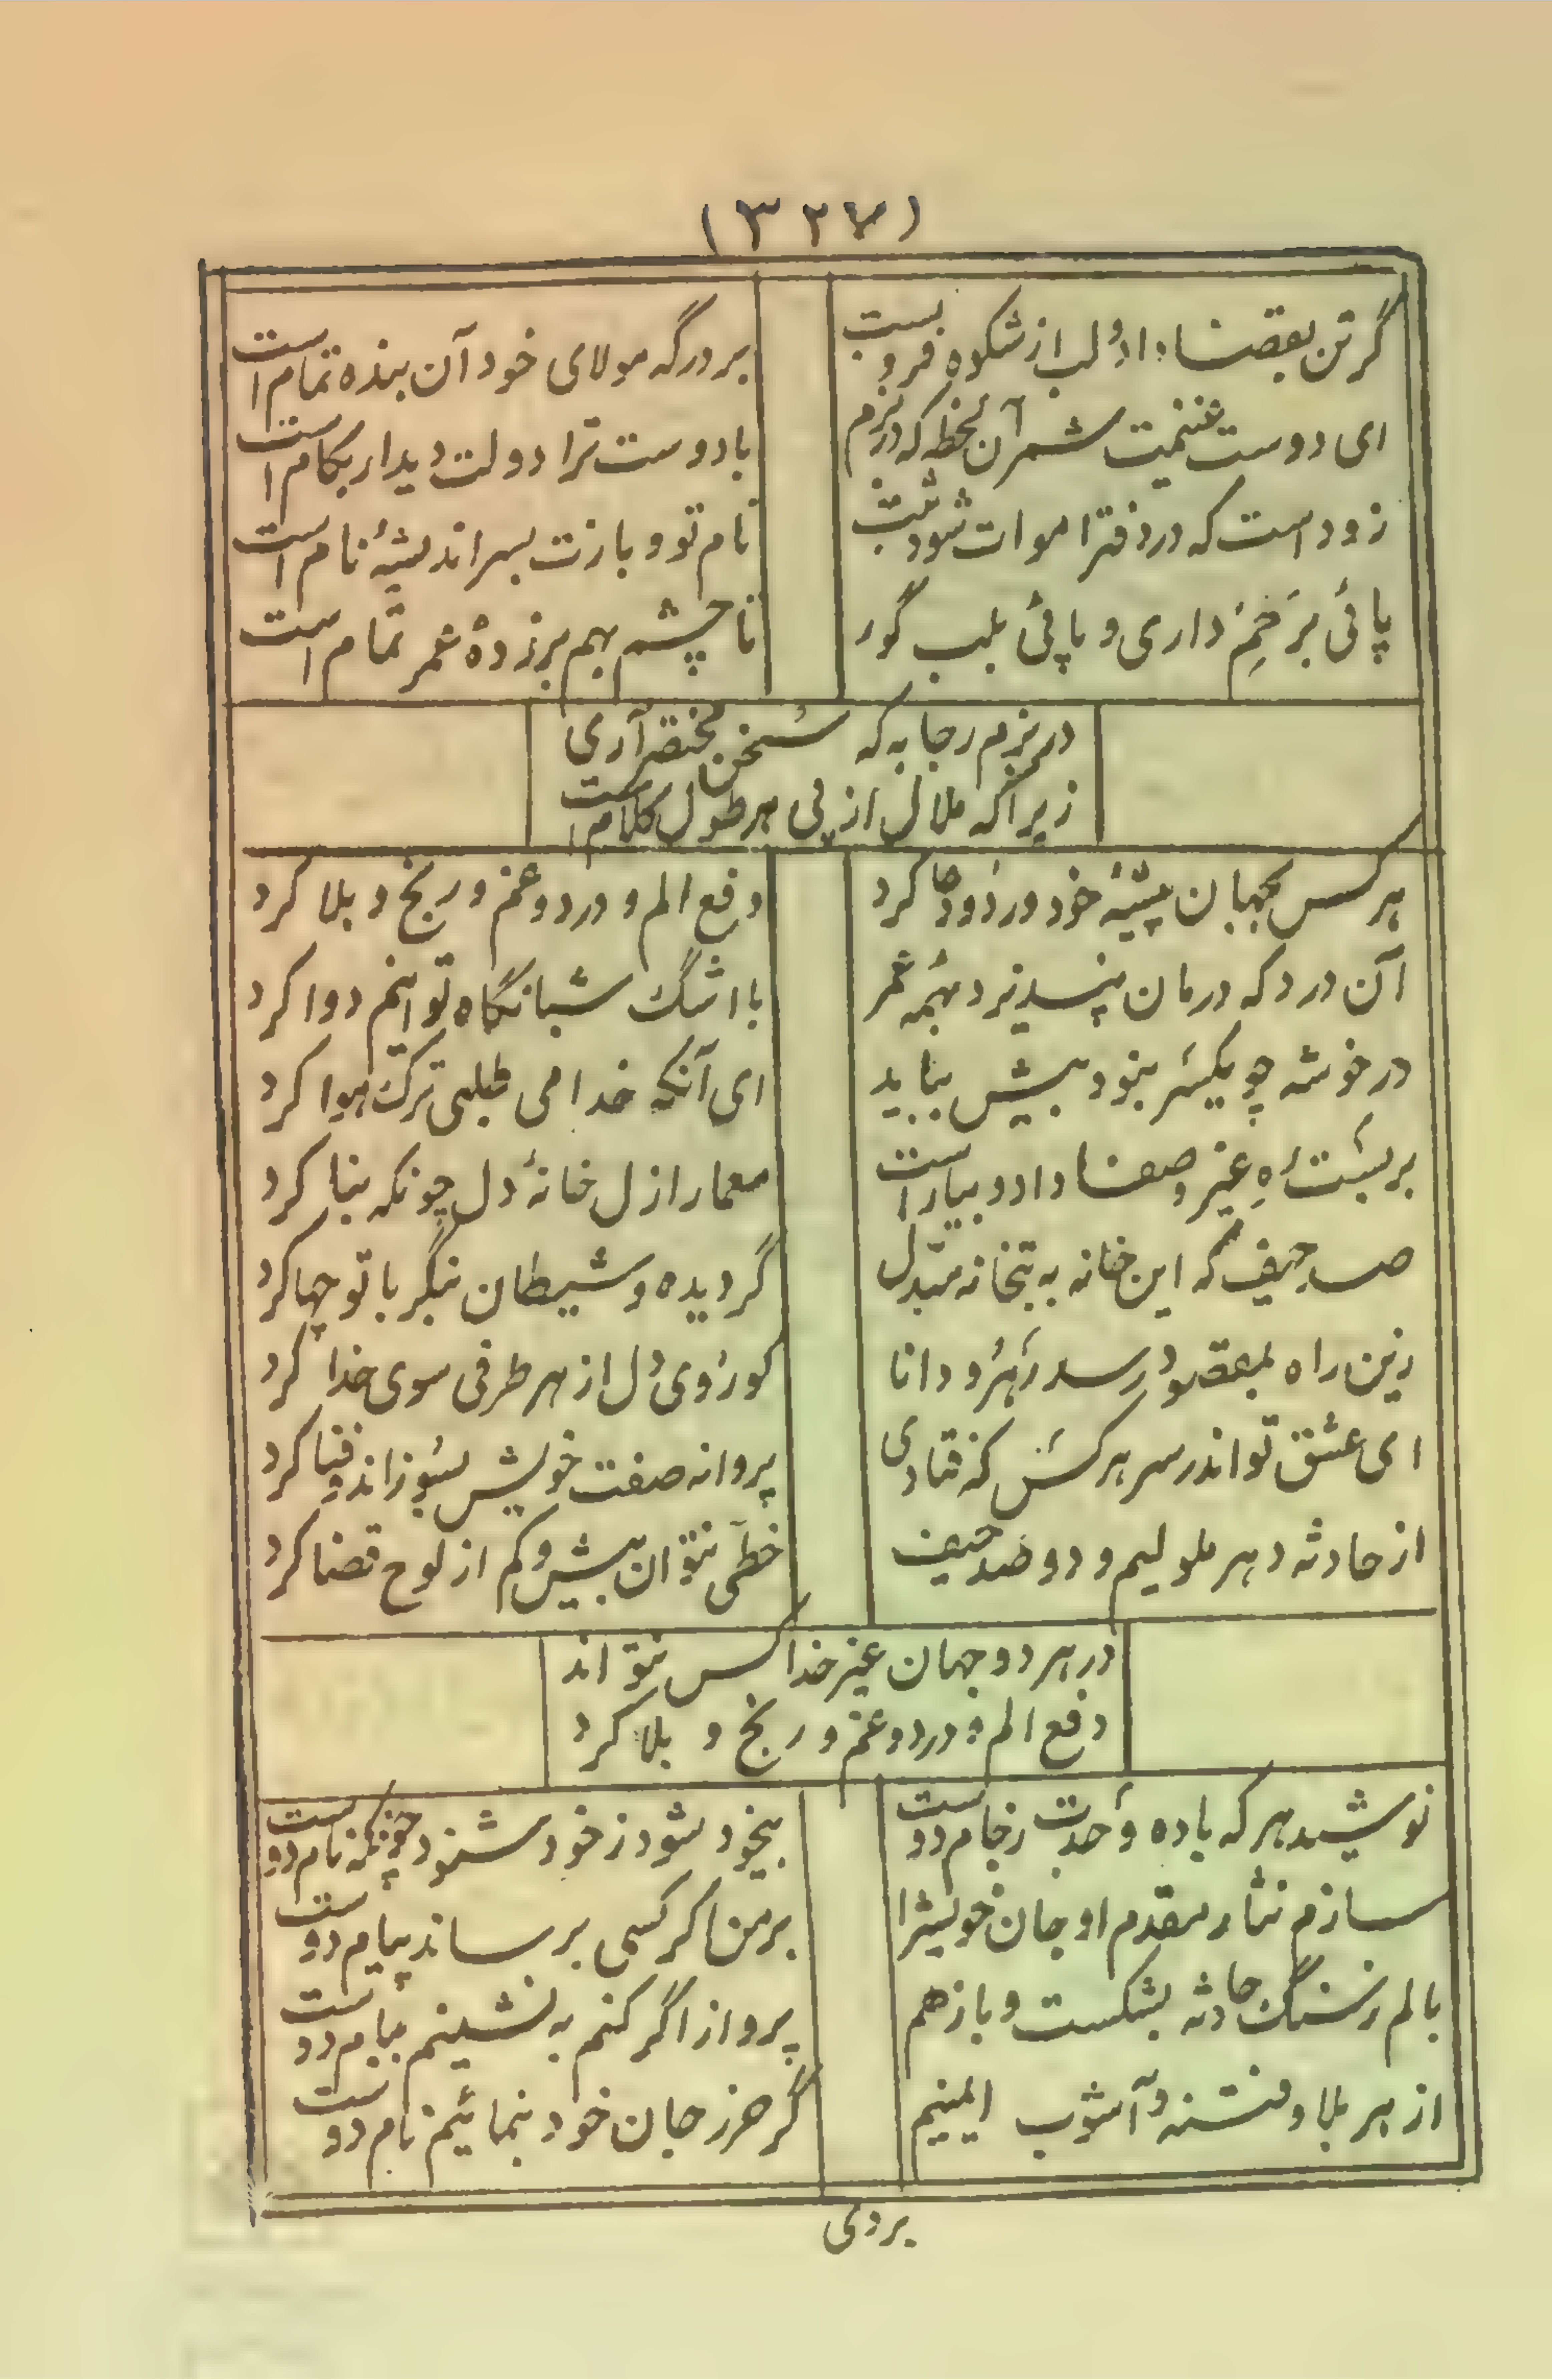 (۳۲۷)
گر تن بقضا داد و لب از شکوه فروبست
بر درگه مولای خود آن بنده تمام است
ای دوست غنیمت شمر آن لحظه که در بزم
با دوست ترا دولت دیدار بکام است
زود است که در دفتر اموات شود ثبت
نام تو و بازت بسر اندیشهٔ نام است
پائی بر خم داری و پائی بلب گور
تا چشم بهم برزدهٔ عمر تمام است
در بزم رجا به که سخن مختصر آری
زیرا که ملال از پی هر طول کلام است
هر کس بجهان پیشهٔ خود ورد و دعا کرد
دفع الم و درد و غم و رنج و بلا کرد
آن درد که درمان نپسندیزد همه عمر
با اشک شبانگاه توانیم دوا کرد
در خوشه چو یکسر بنود بیش بیاید
ای آنکه خدا می طلبی ترک هوا کرد
بر بست ره غیر و صفا داد و بیاراست
معمار ازل خانهٔ دل چونکه بنا کرد
صد حیف که این خانه به بتخانه مبدل
گردیده و شیطان بنگر با تو چها کرد
زین راه بمقصود رسد رهرو دانا
کو روی دل از هر طرفی سوی خدا کرد
ای عشق تو اندر سر هر کس که فتادی
پروانه صفت خویش بسوزاند و فنا کرد
از حادثه دهر ملولیم و دو صد حیف
خطی نتوان بیش و کم از لوح قضا کرد
در هر دو جهان غیر خدا کس نتواند
دفع الم و درد و غم و رنج و بلا کرد
نوشید هر که باده وحدت ز جام دوست
بیخود شود ز خود شنود چونکه نام دوست
سازم نثار مقدم او جان خویش را
بر من اگر کسی برساند پیام دوست
بالم ز سنگ حادثه بشکست و باز هم
پرواز اگر کنم به نشینم ببام دوست
از هر بلا و فتنه و آشوب ایمنیم
گر حرز جان خود بنمائیم نام دوست
بردی